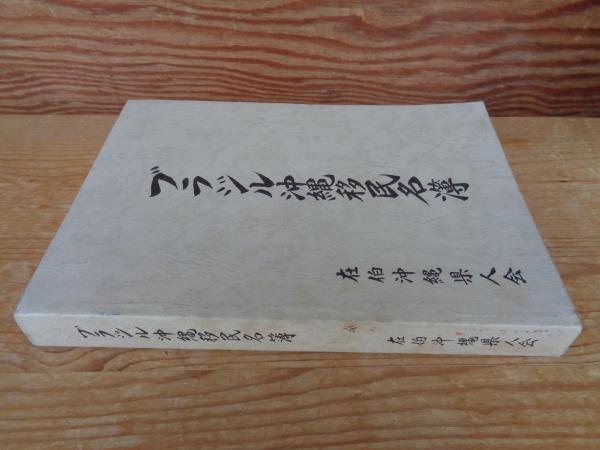 ブラジル沖縄移民名簿
在伯沖縄県人会
ブラジル沖縄移民名簿
在伯沖縄県人会